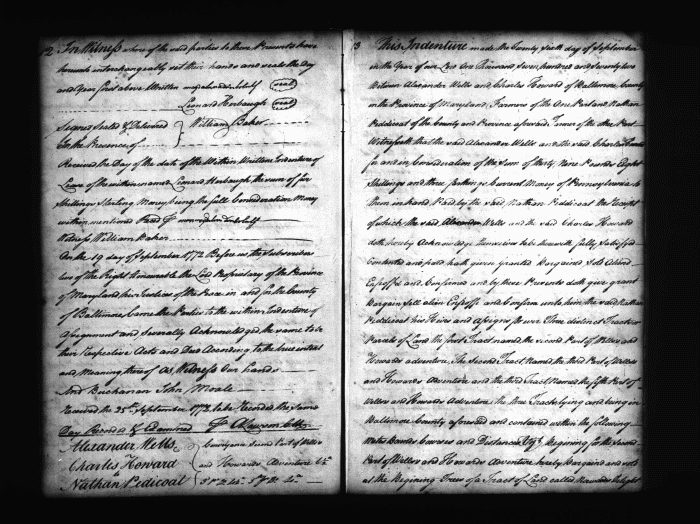 12 In Witness where of the said parties to these Presents have
hereunto interchangeably set their hands and seals the day
and Year first above Written
Leonard Harbaugh (seal)
Signed Sealed & Delivered } William Baker
In the Presence of
Received the Day of the date of the Within Written Indenture of
Lease of the within named Leonard Harbaugh the sum of five
Shillings Sterling Money being the full Consideration Money
within mentioned
Witness William Baker
On the 19 day of September 1772 Before us the Subscribers
two of the Right Honourable the Lord Proprietary of the Province
of Maryland his Justices of the Peace in and for the County
of Baltimore Came the Parties to the within Indenture of
Assignment and severally Acknowledged the same to be
their Respective Acts and Deed According to the true intent
and Meaning thereof As Witness Our hands
And Buchanan John Moale
Received the 25th September 1772 to be Recorded the same
Day Record'd & Examined A Lawson Clk
Alexander Wells
Charles Howard
&
Nathan Pedicoat
} Conveyance Second Part of Wells
and Howards Adventure &c
13 This Indenture made the Twenty Sixth day of September
in the Year of our Lord One Thousand Seven hundred and Seventy two
Between Alexander Wells and Charles Howard of Baltimore County
in the Province of Maryland Farmers of the One Part and Nathan
Peddicoat of the County and Province aforesaid Farmer of the other Part
Witnesseth that the said Alexander Wells and the said Charles Howard
for and in Consideration of the Sum of thirty Nine Pounds Eight
Shillings and three farthings Current Money of Pennsylvania to
them in hand Paid by the said Nathan Peddicoat the Receipt
of which the said Alexander Wells and the said Charles Howard
doth hereby Acknowledge themselves to be therewith fully Satisfied
Contented and paid hath given granted Bargained Sold Aliened
Enfeoffed and Confirmed and by these Presents doth give grant
Bargain sell alien Enfeoff and Confirm unto him the said Nathan
Peddicoat his Heirs and Assigns for ever Three distinct Tracts or
Parcels of Land the first Tract named the second Part of Wells and
Howards adventure. The Second Tract Named the third Part of Wells
and Howards Adventure and the third Tract Named the fifth Part of
Wells and Howards Adventure the three Tracts lying and being in
Baltimore County aforesaid and contained within the following
Metes Bounds Courses and Distances Viz. Begining for the second
Part of Wells and Howards Adventure hereby Bargained and sold
at the Begining Trees of a Tract of Land called Rawlands Delight